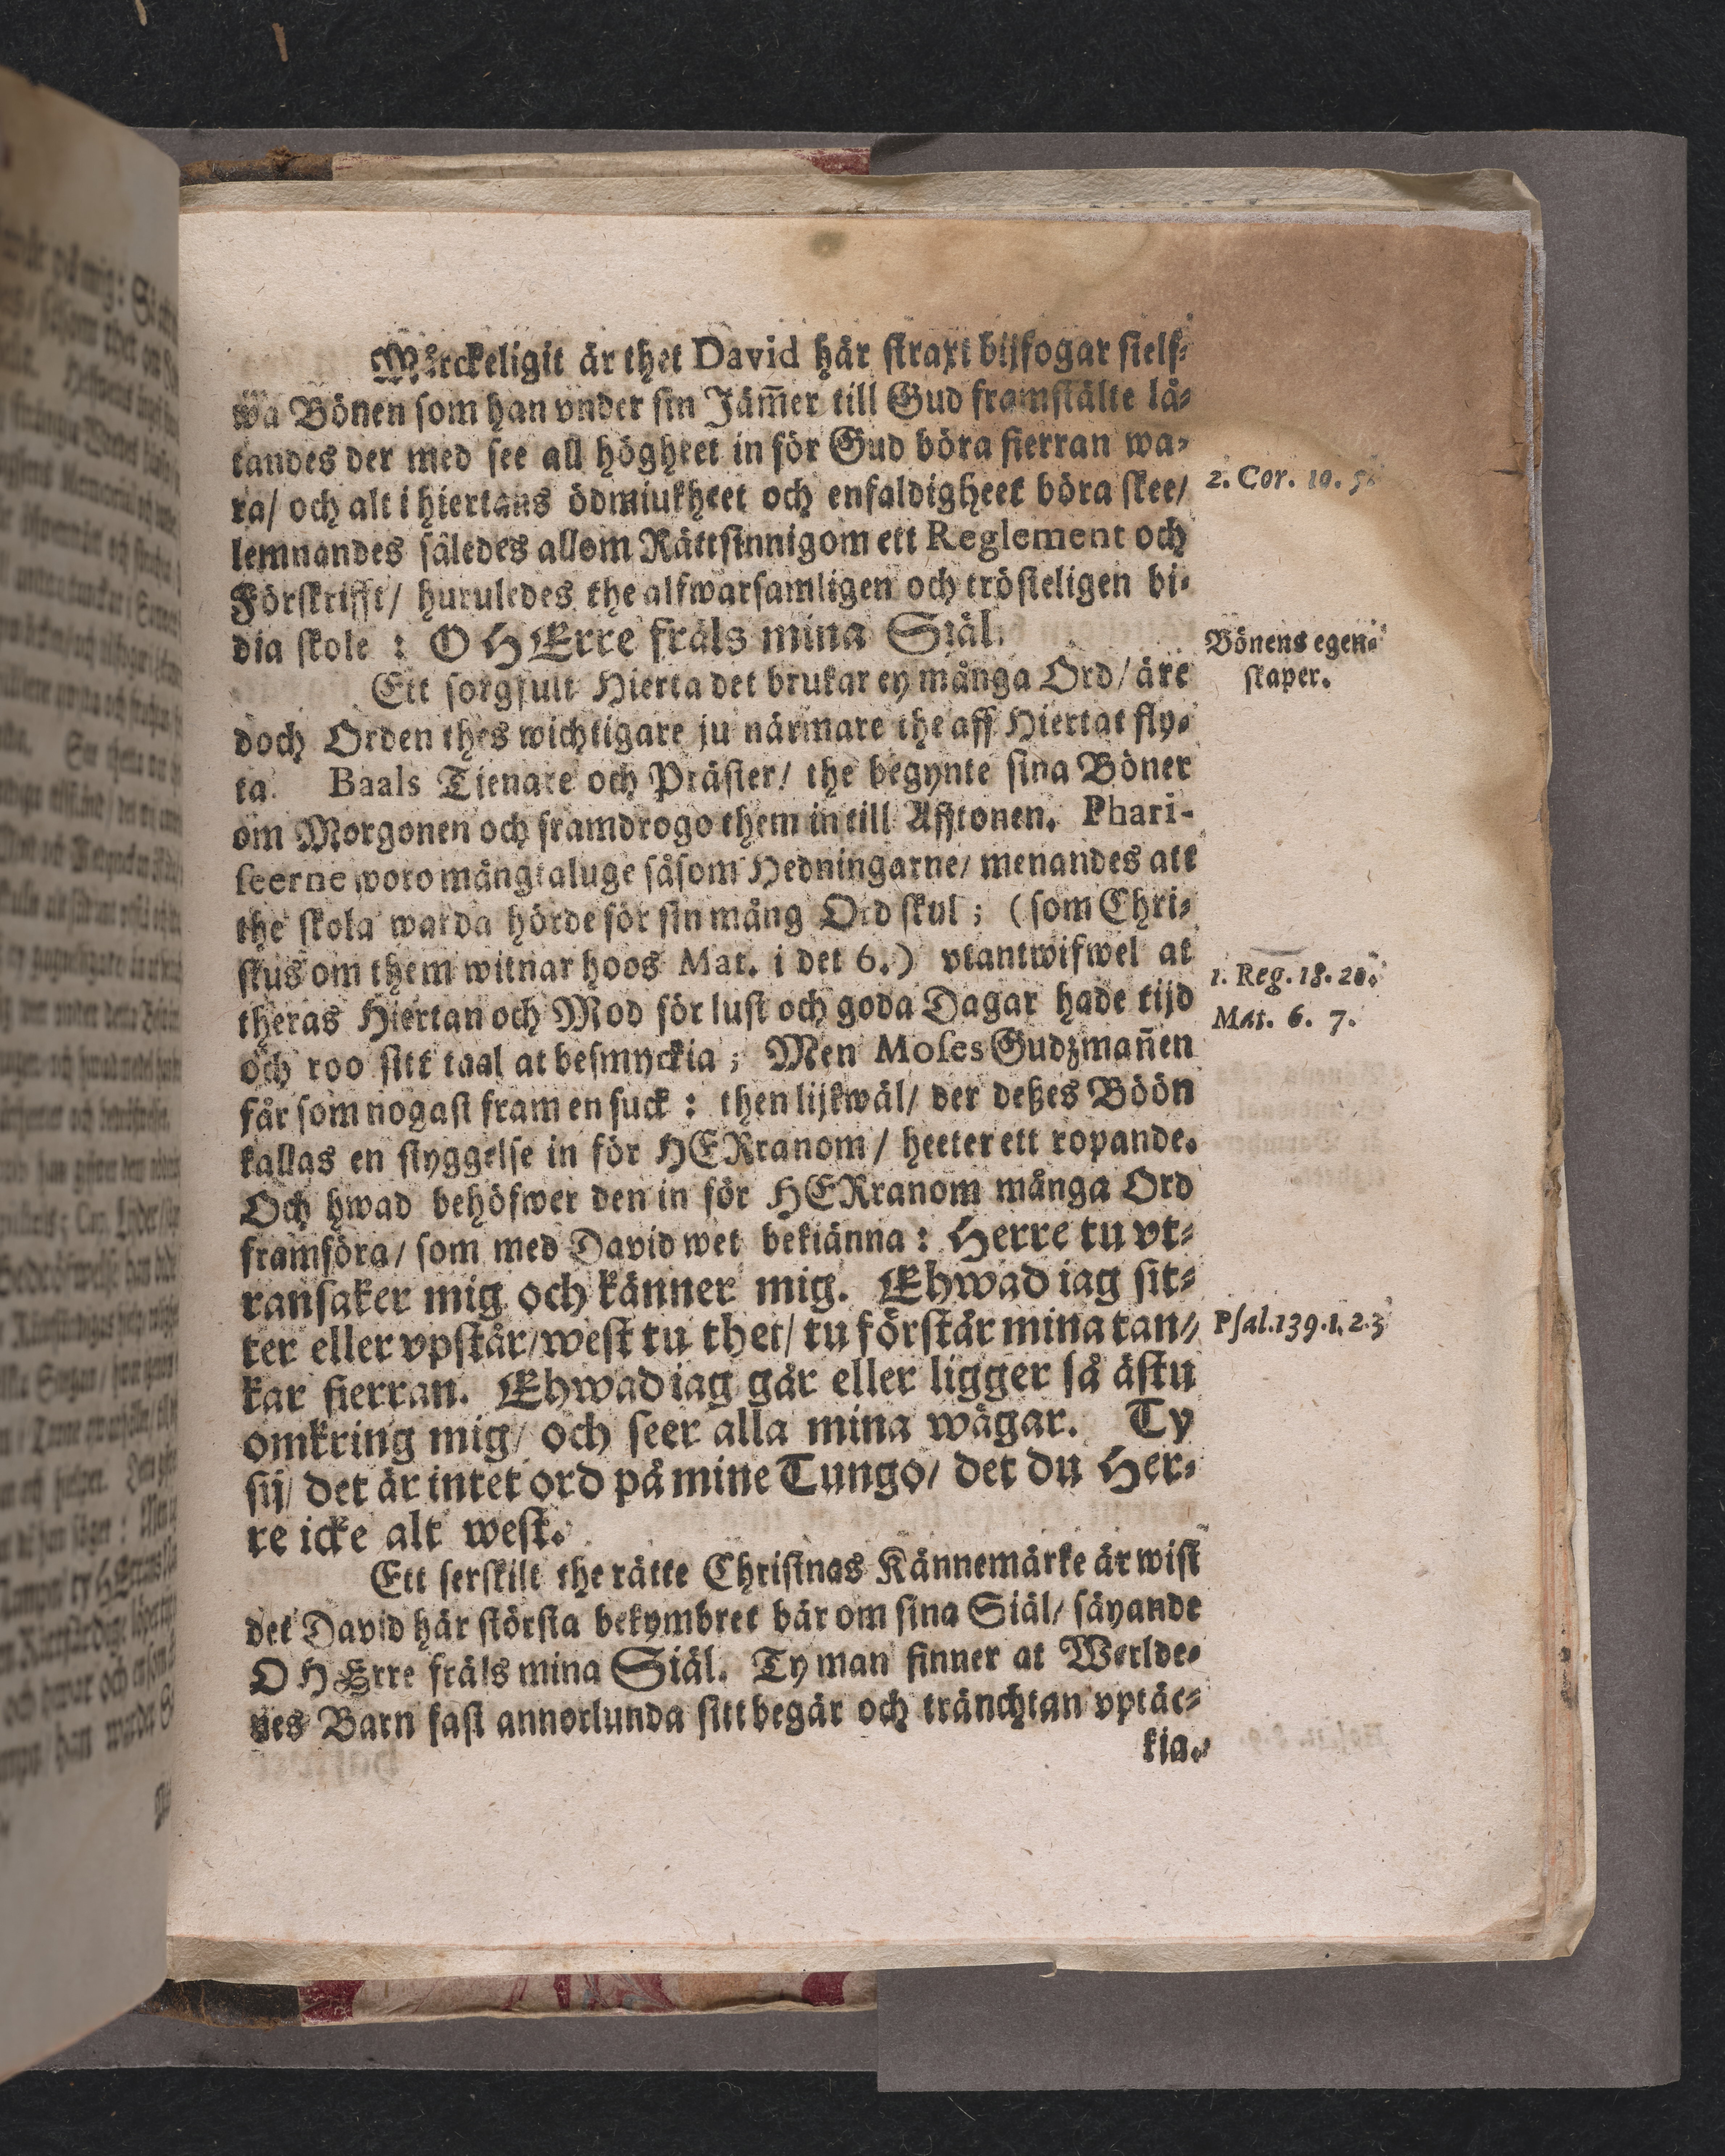 Märckeligit är thet David här straxt bijfogar sielf-
wa Bönen som han vnder sin Jäm̃er till Gud framstälte lå-
tandes der med see all högheet in för Gud böra fierran wa-
ra/ och alt i hiertans ödmiukheet och enfaldigheet böra skee/
2. Cor. 10. 5.
lemnandes således allom Rättsinnigom ett Reglement och
Förskrifft/ huruledes the alfwarsamligen och trösteligen bi-
dia skole : O HErre fräls mina Siäl.
Bönens egen-
skaper.
Ett sorgfult Hierta det brukar ey många Ord/ äre
doch Orden thes wichtigare ju närmare the aff Hiertat fly-
ta. Baals Tienare och Präster/ the begynte sina Böner
om Morgonen och framdrogo them in till Afftonen. Phari-
seerne woro mångtaluge såsom Hedningarne/ menandes att
the skola warda hörde för sin mång Ord skul ; (som Chri-
stus om them witnar hoos Mat. i det 6.) vtantwifwel at
1. Reg. 18. 28.
theras Hiertan och Mod för lust och goda Dagar hade tijd
Mat. 6. 7.
och roo sitt taal at besmyckia ; Men Moses Gudzmañen
får som nogast fram en suck : then lijkwäl/ der deßes Böön
kallas en styggelse in för HERranom / heeter ett ropande.
Och hwad behöfwer den in för HERranom många Ord
framföra/ som med David wet bekiänna : Herre tu vt-
ransaker mig och känner mig. Ehwad iag sit-
ter eller vpstår/ west tu thet/ tu förstår mina tan-
Psal.139.1.2.3
kar fierran. Ehwad iag går eller ligger så ästu
omkring mig/ och seer alla mina wägar. Ty
sij/ det är intet ord på mine Tungo/ det du Her-
re icke alt west.
Ett serskilt the rätte Christnas Kännemärke är wist
det David här största bekymbret bär om sina Siäl/ säyande
O HErre fräls mina Siäl. Ty man finner at Werlde-
nes Barn fast annorlunda sitt begär och tränchtan vptäc-
kia.